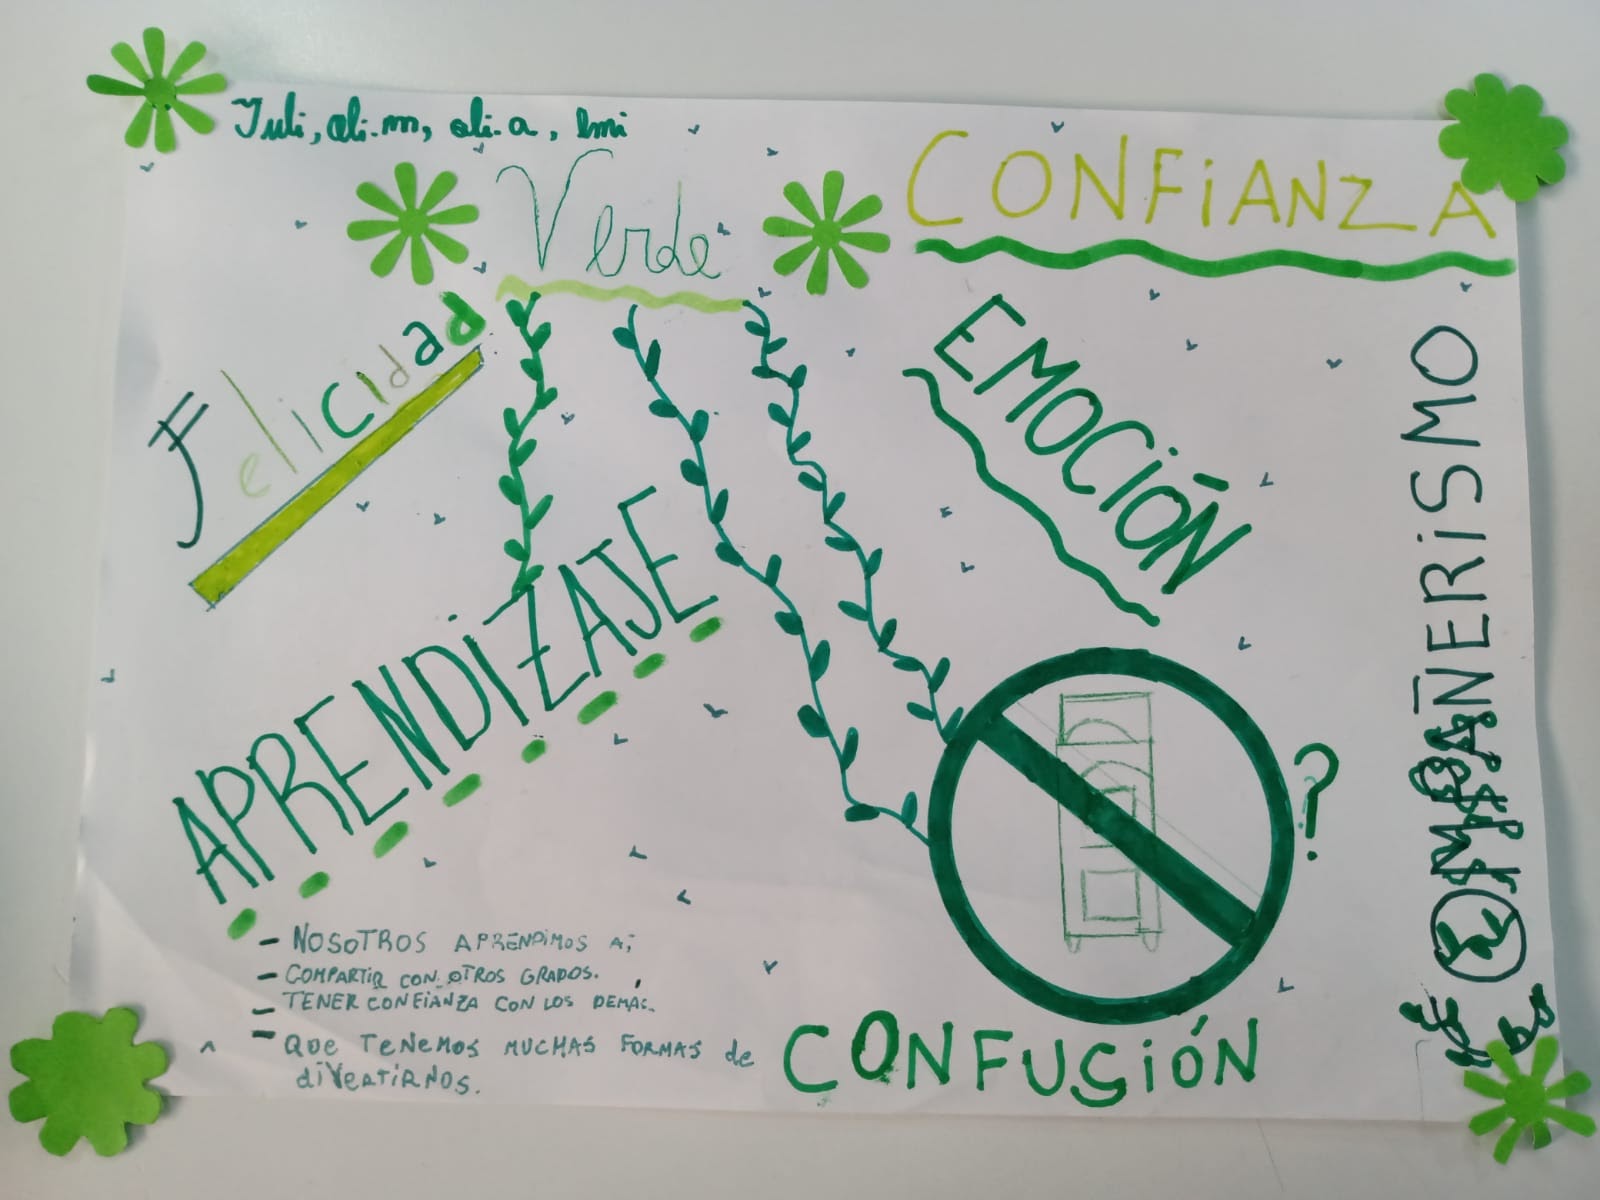 Juli, oli.m, oli.a, Emi
Verde
CONFiANZA
Felicidad
EMOCiÓN
APRENDiZAJE
COMPAÑERiSMO
?
- NOSOTROS APRENDiMOS A;
- COMPARTIR CON OTROS GRADOS.
- TENER CONFiANZA CON LOS DEMÁS.
- QUE TENEMOS MUCHAS FORMAS de
diVERTIRNOS.
CONFUSiÓN